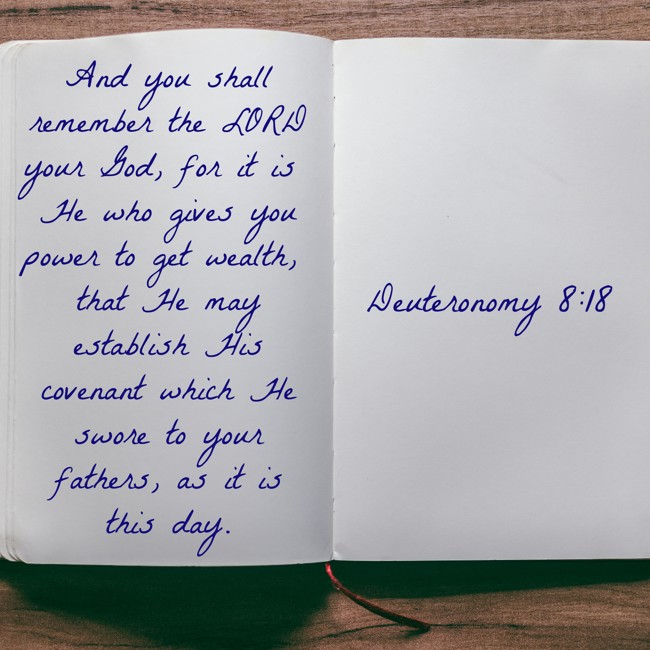 And you shall
remember the LORD
your God, for it is
He who gives you
power to get wealth,
that He may
establish His
covenant which He
swore to your
fathers, as it is
this day.
Deuteronomy 8:18